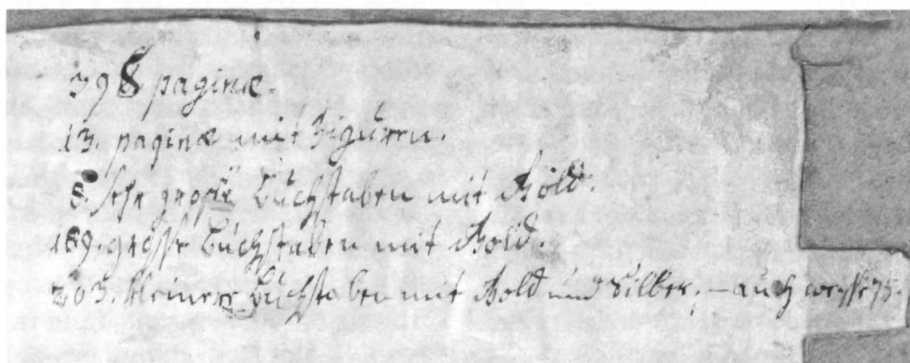 398 paginæ.
13. paginæ mit Figuren.
8. sehr grosse Buchstaben mit Gold.
189. grosse Buchstaben mit Gold.
203. kleinere Buchstaben mit Gold und Silber, – auch weisse 75.